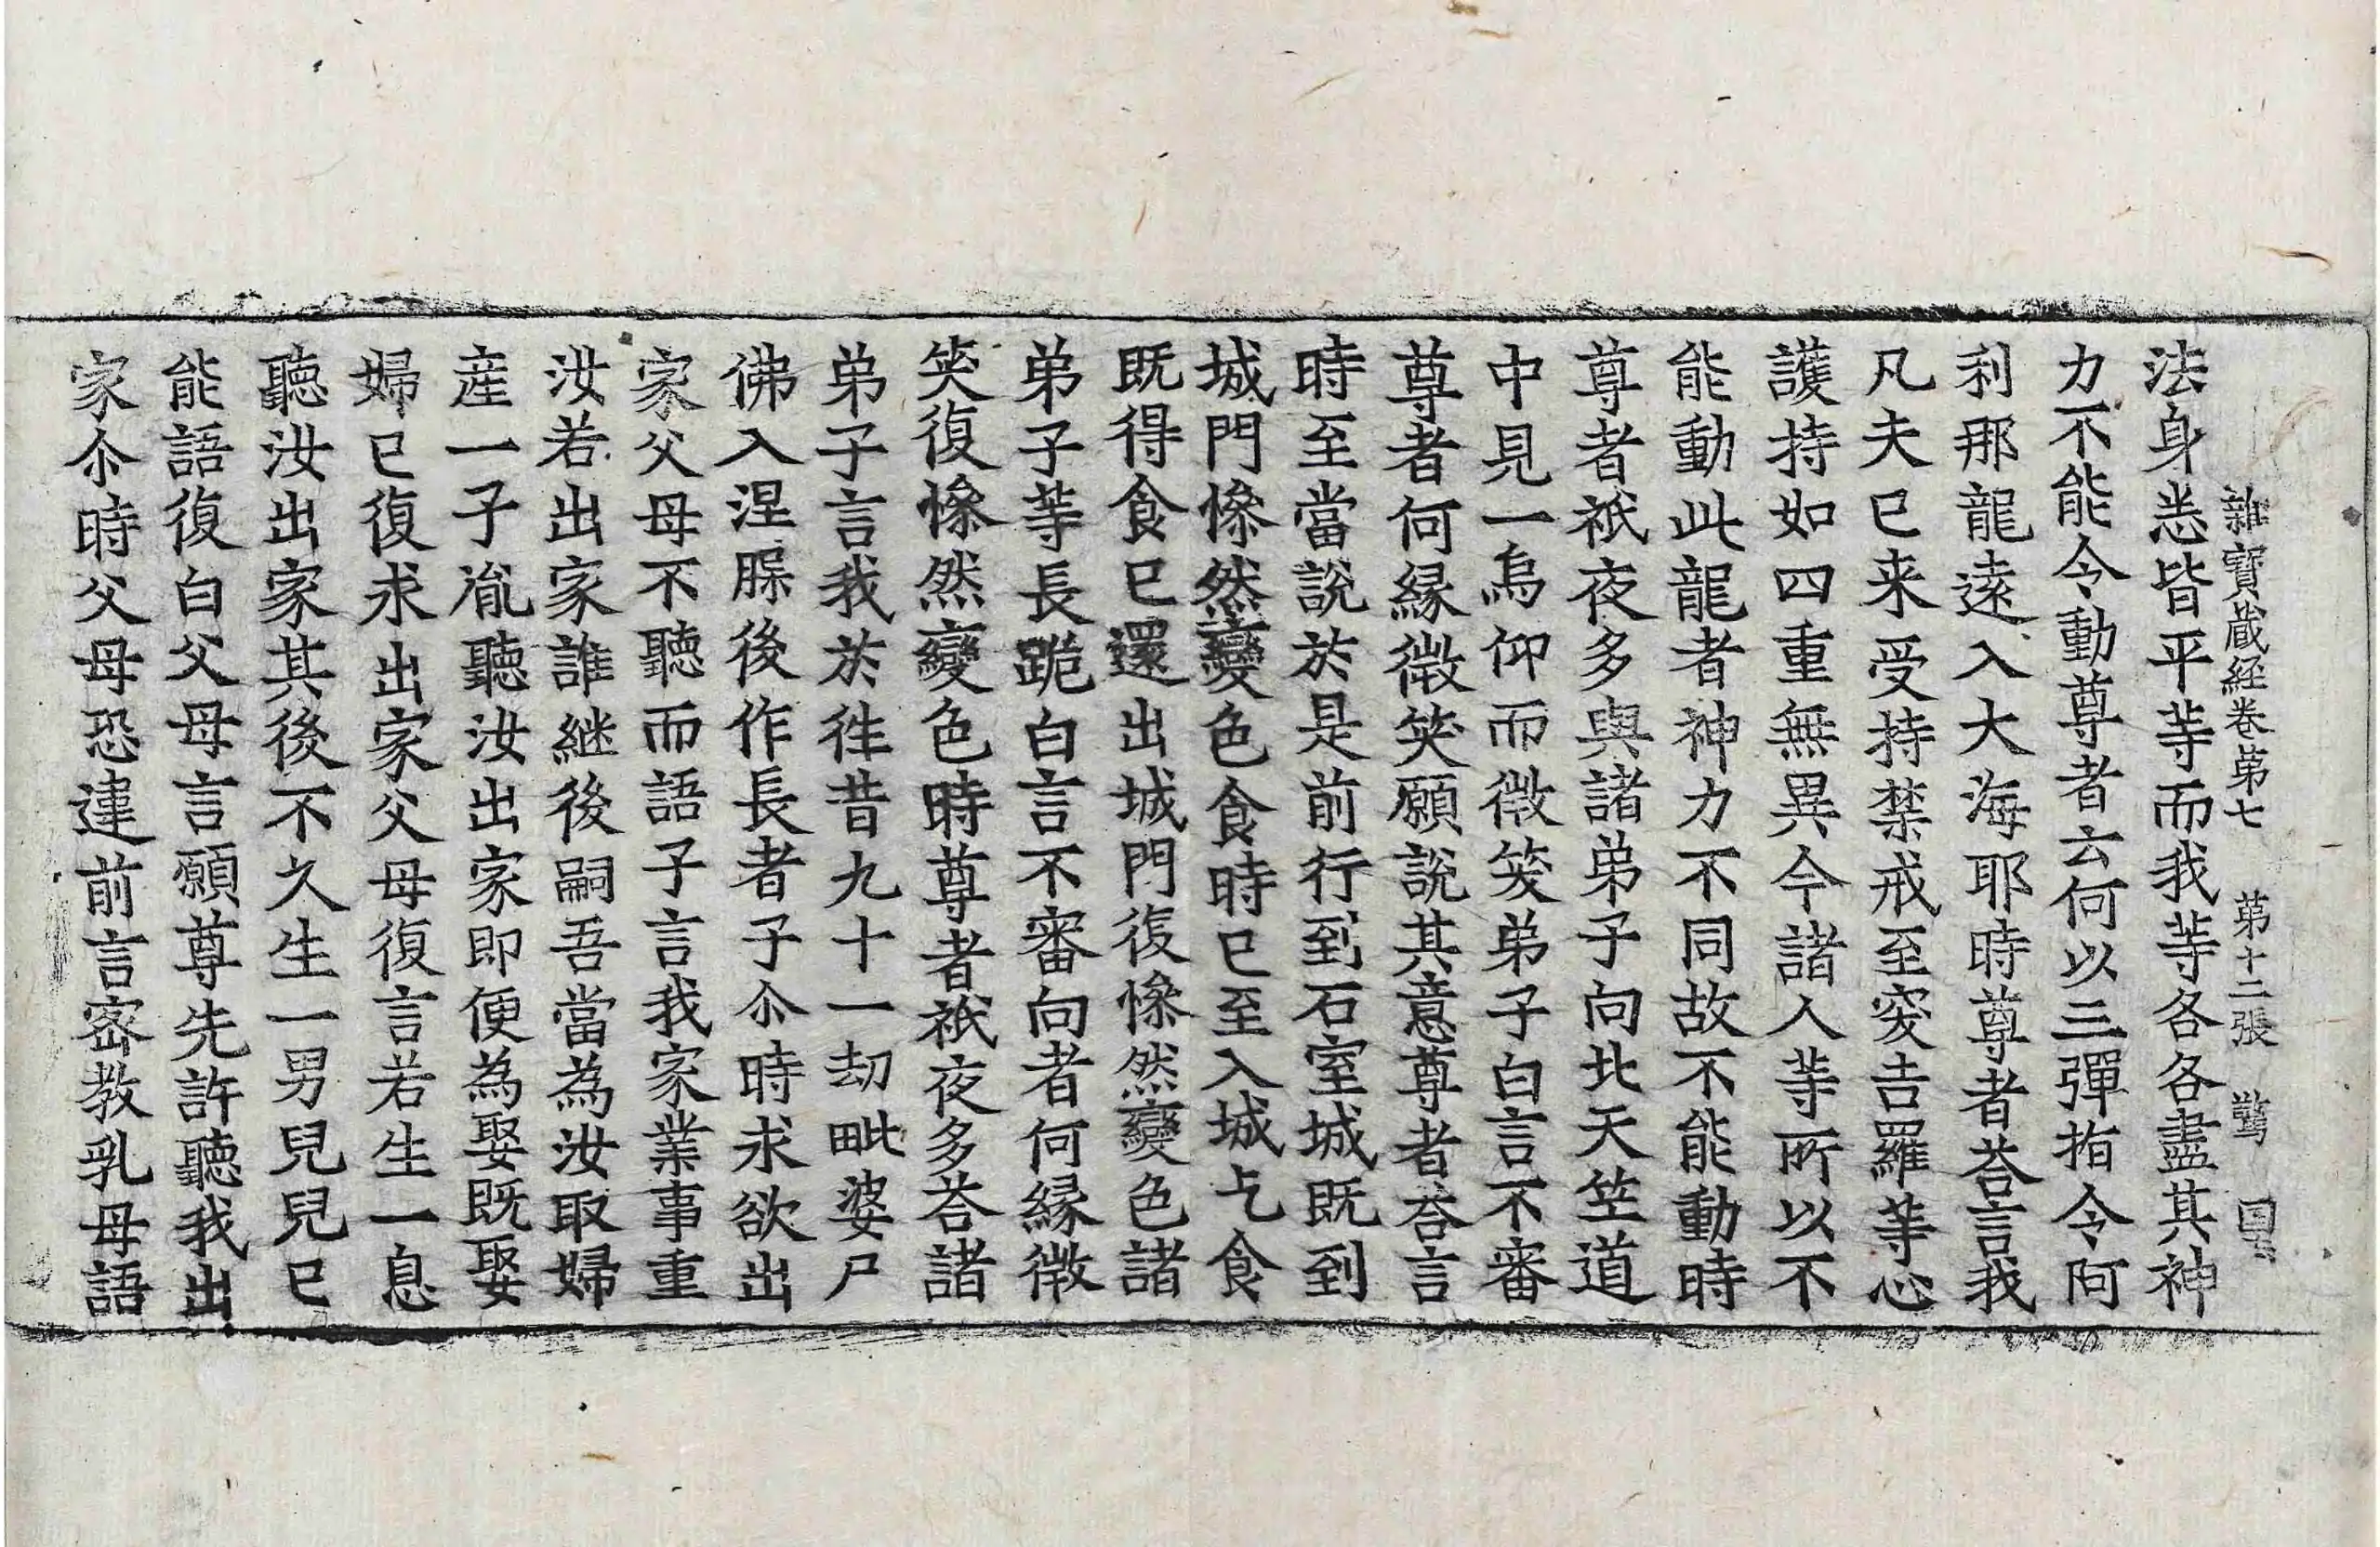 雜寶蔵経卷苐七　苐十二張　驚
法身恙皆平䒭而我䒭各各盡其神
力不能令動尊者云何以三彈指令阿
利那龍遠入大海耶時尊者荅言我
凡夫已来受持禁戒至突吉羅䒭心
護持如四重無異今諸人䒭所以不
能動此龍者神力不同故不能動時
尊者祇夜多與諸弟子向北天笁道
中見一烏仰而微笑弟子白言不審
尊者何縁微笑願說其意尊者荅言
時至當說於是前行到石室城既到
城門慘然變色食時已至入城乞食
既得食已還出城門復慘然變色諸
弟子䒭長跪白言不審向者何縁微
笑復慘然變色時尊者祇夜多荅諸
弟子言我於徃昔九十一劫毗婆尸
佛入涅腺後作長者子尒時求欲出
家父母不聽而語子言我家業事重
汝若出家誰継後嗣吾當為汝取婦
産一子胤聽汝出家即便為娶既娶
婦已復求出家父母復言若生一息
聽汝出家其後不久生一男兒兒已
能語復白父母言願尊先許聽我出
家尒時父母恐違前言密教乳母語